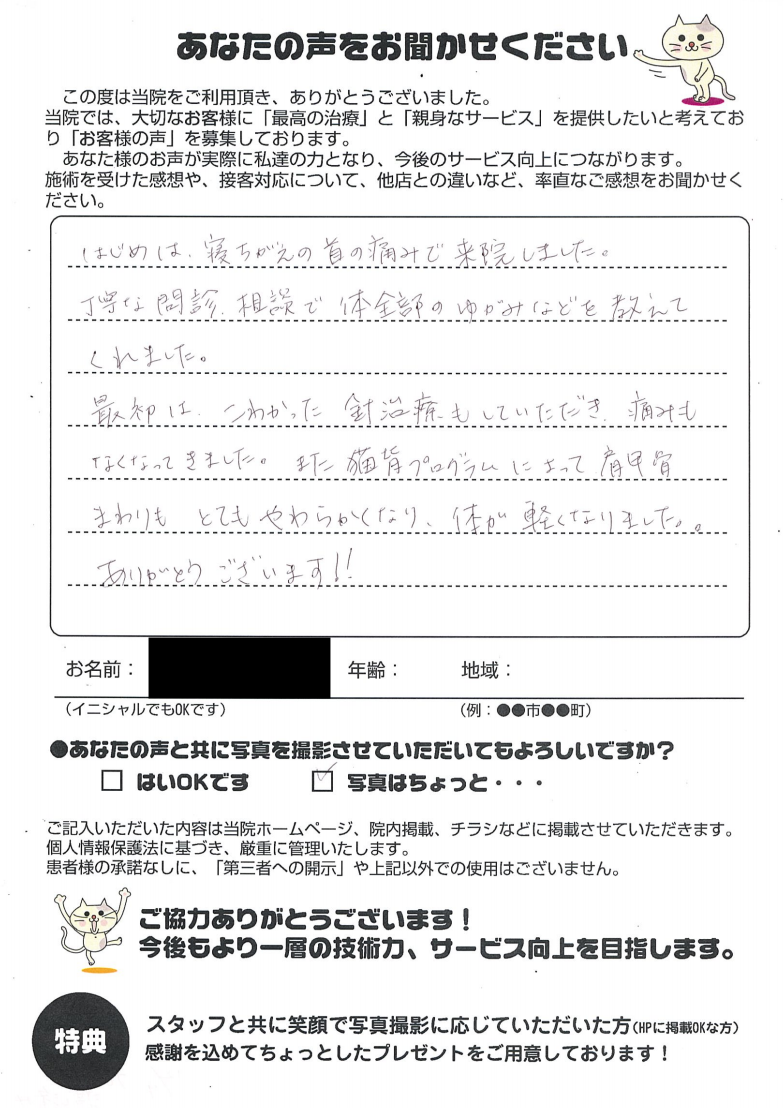 あなたの声をお聞かせください
この度は当院をご利用頂き、ありがとうございました。
当院では、大切なお客様に「最高の治療」と「親身なサービス」を提供したいと考えてお
り「お客様の声」を募集しております。
あなた様のお声が実際に私達の力となり、今後のサービス向上につながります。
施術を受けた感想や、接客対応について、他店との違いなど、率直なご感想をお聞かせく
ださい。
はじめは、寝ちがえの首の痛みで来院しました。
丁寧な問診、相談で体全部のゆがみなどを教えて
くれました。
最初は、こわかった針治療もしていただき、痛みも
なくなってきました。また猫背プログラムによって肩甲骨
まわりもとてもやわらかくなり、体が軽くなりました。。
ありがとうございます!!
お名前：
年齢：
地域：
（イニシャルでもOKです）
（例：●●市●●町）
●あなたの声と共に写真を撮影させていただいてもよろしいですか？
□ はいOKです
☑ 写真はちょっと・・・
ご記入いただいた内容は当院ホームページ、院内掲載、チラシなどに掲載させていただきます。
個人情報保護法に基づき、厳重に管理いたします。
患者様の承諾なしに、「第三者への開示」や上記以外での使用はございません。
ご協力ありがとうございます！
今後もより一層の技術力、サービス向上を目指します。
特典
スタッフと共に笑顔で写真撮影に応じていただいた方(HPに掲載OKな方)
感謝を込めてちょっとしたプレゼントをご用意しております！